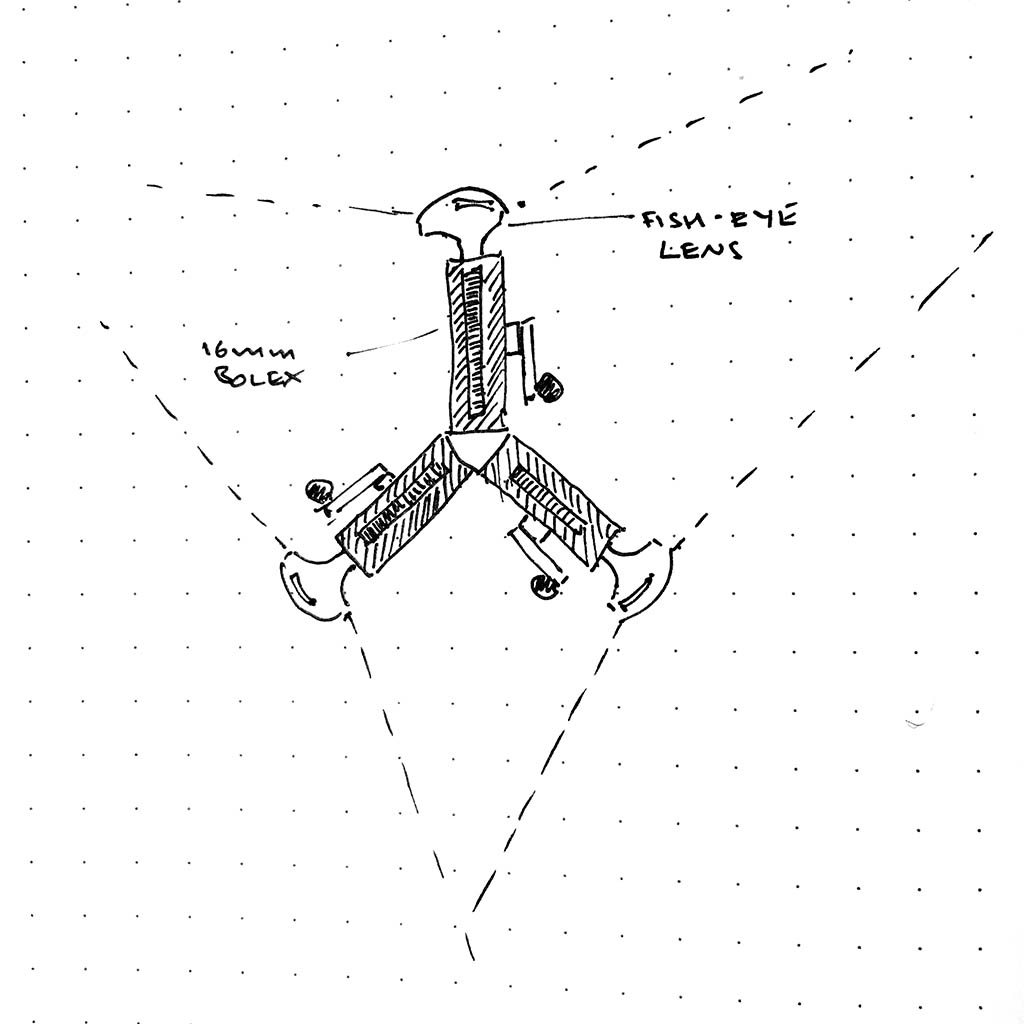 FISH-EYE
LENS
16mm
BOLEX